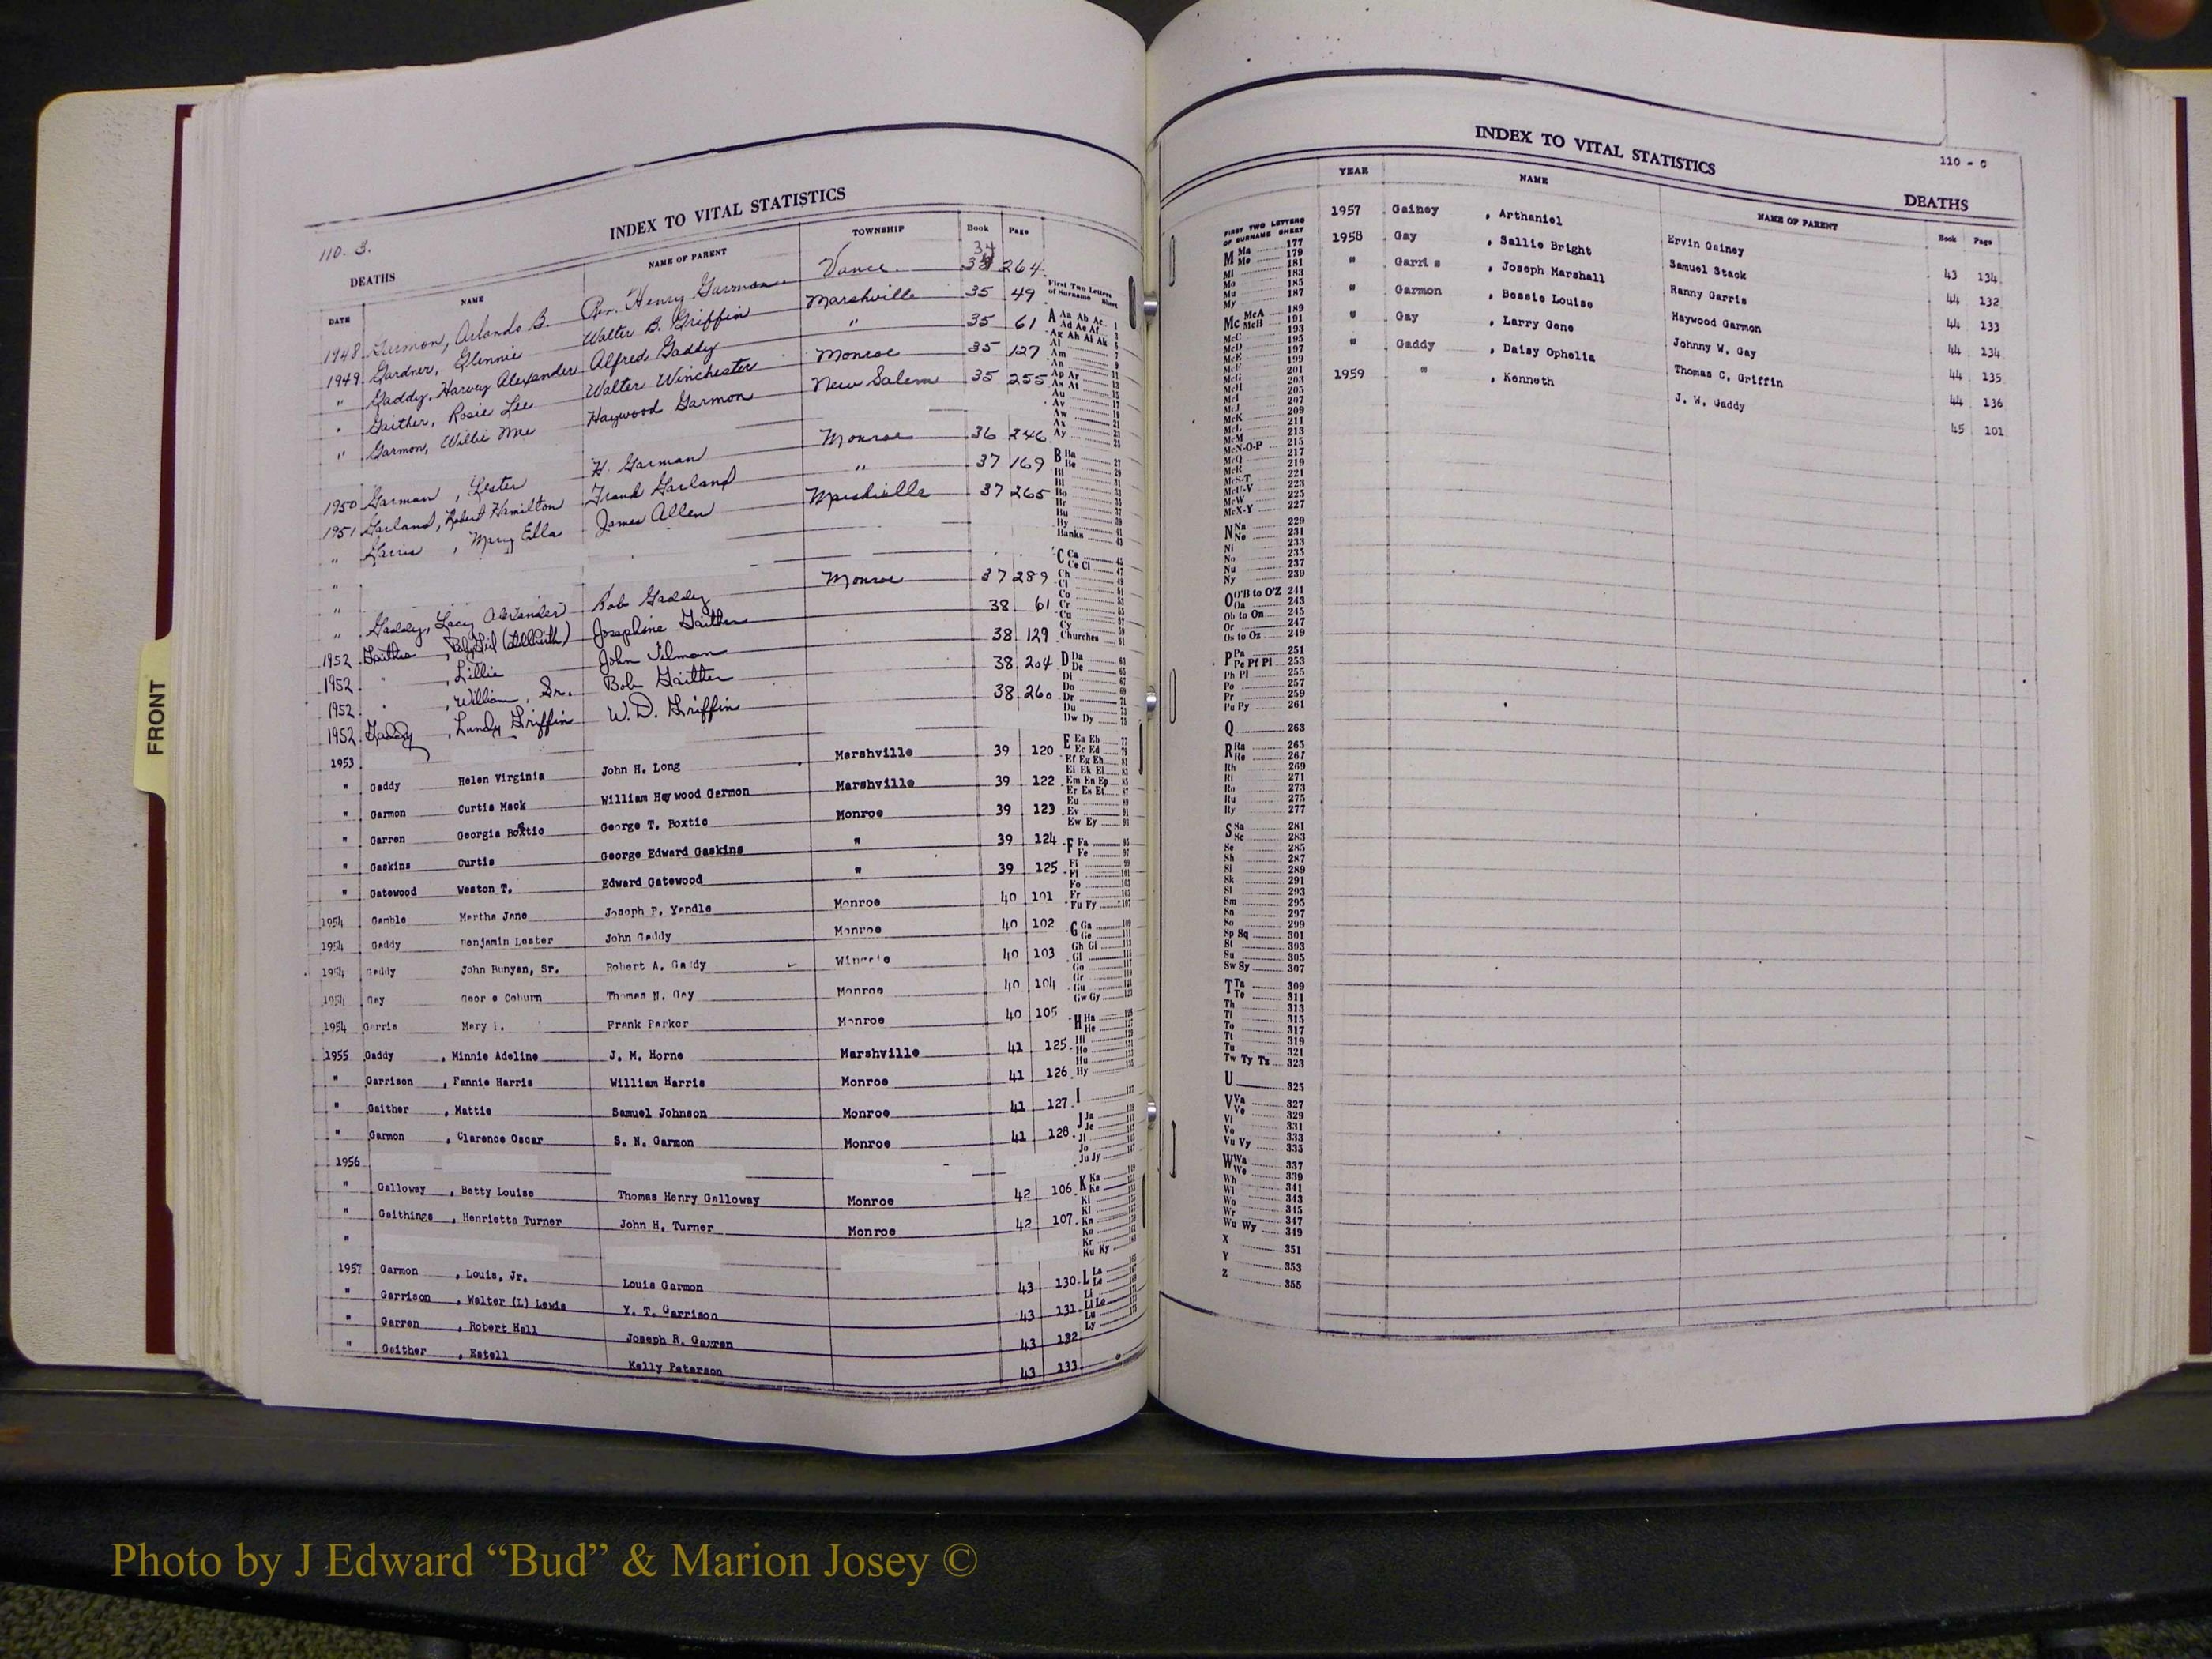 FRONT
INDEX TO VITAL STATISTICS
110-B.
DEATHS
DATE NAME NAME OF PARENT TOWNSHIP Book Page
1948 Garmon, Orlando B. Rev. Henry Garmon Vance 34 264
1949 Gardner, Glennie Walter B. Griffin Marshville 35 49
" Gaddy, Harvey Alexander Alfred Gaddy " 35 61
" Gaither, Rosie Lee Walter Winchester Monroe 35 127
" Garmon, Willie Mae Haywood Garmon New Salem 35 255
1950 Garman, Lester H. Garman Monroe 36 246
1951 Garland, Robert Hamilton Frank Garland " 37 169
" Garris, Mary Ella James Allen Marshville 37 265
"
" Gaddy, Lacy Alexander Rob Gaddy Monroe 37 289
1952 Gaither, Josephine Gaither 38 61
1952 " , Lillie John Tilman 38 129
1952 " , William, Sr. Bob Gaither 38 204
1952 Gaddy, Lundy Griffin W. D. Griffin 38 260
1953
" Gaddy Helen Virginia John H. Long Marshville 39 120
" Garmon Curtis Mack William Heywood Germon Marshville 39 122
" Garren Georgia Bostic George T. Boxtic Monroe 39 123
" Gaskins Curtis George Edward Gaskins " 39 124
" Gatewood Weston T. Edward Gatewood " 39 125
1954 Gamble Martha Jane Joseph P. Yandle Monroe 40 101
1954 Gaddy Benjamin Lester John Gaddy Monroe 40 102
1954 Gaddy John Bunyan, Sr. Robert A. Gaddy Wingate 40 103
1954 Gay Geor e Coburn Thomas N. Gay Monroe 40 104
1954 Garris Mary Frank Parkor Monroe 40 105
1955 Gaddy , Minnie Adeline J. M. Horne Marshville 41 125
" Garrison , Fannie Harris William Harris Monroe 41 126
" Gaither , Mattie Samuel Johnson Monroe 41 127
" Garmon , Clarence Oscar S. N. Garmon Monroe 41 128
1956
" Galloway , Betty Louise Thomas Henry Galloway Monroe 42 106
" Gaithings , Henrietta Turner John H. Turner Monroe 42 107
"
1957 Garmon , Louis, Jr. Louis Garmon 43 130
" Garrison , Walter (L) Lewis Y. T. Garrison 43 131
" Garren , Robert Hall Joseph R. Garren 43 132
" Gaither , Estell Kelly Peterson 43 133
First Two Letters
of Surname Sheet
A Aa Ab Ac
Ad Ae Af
Ag Ah Ai Ak
Al
Am
An
Ap Ar
As At
Au
Av
Aw
Ax
Ay
B Ba
Be
Bi
Bl
Bo
Br
Bu
By
Banks
C Ca
Ce Ci
Ch
Cl
Co
Cr
Cu
Cy
Churches
D Da
De
Di
Do
Dr
Du
Dw Dy
E Ea Eb
Ec Ed
Ef Eg Eh
Ei Ek El
Em En Ep
Er Es Et
Eu
Ev
Ew Ey
F Fa
Fe
Fi
Fl
Fo
Fr
Fu Fy
G Ga
Ge
Gh Gi
Gl
Go
Gr
Gu
Gw Gy
H Ha
He
Hi
Ho
Hu
Hy
I
J Ja
Je
Ji
Jo
Ju Jy
K Ka
Ke
Ki
Kl
Kn
Ko
Kr
Ku Ky
L La
Le
Li
Ll Lo
Lu
Ly
INDEX TO VITAL STATISTICS
110 - C
DEATHS
YEAR NAME NAME OF PARENT Book Page
1957 Gainey , Arthaniel Ervin Gainey 43 134
1958 Gay , Sallie Bright Samuel Stack 44 132
" Garris , Joseph Marshall Ranny Garris 44 133
" Garmon , Bessie Louise Haywood Garmon 44 134
" Gay , Larry Gene Johnny W. Gay 44 135
" Gaddy , Daisy Ophelia Thomas C. Griffin 44 136
1959 " , Kenneth J. W. Gaddy 45 101
FIRST TWO LETTERS
OF SURNAME SHEET
M Ma 177
Me 179
Mi 181
Mo 183
Mu 185
My 187
Mc McA 189
McB 191
McC 193
McD 195
McE 197
McF 199
McG 201
McH 203
McI 205
McJ 207
McK 209
McL 211
McM 213
McN-O-P 215
McQ 217
McR 219
McS-T 221
McU-V 223
McW 225
McX-Y 227
N Na 229
Ne 231
Ni 233
No 235
Nu 237
Ny 239
O O'B to O'Z 241
Oa 243
Ob to On 245
Or 247
Os to Oz 249
P Pa 251
Pe Pf Pl 253
Ph Pi 255
Po 257
Pr 259
Pu Py 261
Q 263
R Ra 265
Re 267
Rh 269
Ri 271
Ro 273
Ru 275
Ry 277
S Sa 281
Sc 283
Se 285
Sh 287
Si 289
Sk 291
Sl 293
Sm 295
Sn 297
So 299
Sp Sq 301
St 303
Su 305
Sw Sy 307
T Ta 309
Te 311
Th 313
Ti 315
To 317
Tr 319
Tu 321
Tw Ty Tz 323
U 325
V Va 327
Ve 329
Vi 331
Vo 333
Vu Vy 335
W Wa 337
We 339
Wh 341
Wi 343
Wo 345
Wr 347
Wu Wy 349
X 351
Y 353
Z 355
Photo by J Edward “Bud” & Marion Josey ©